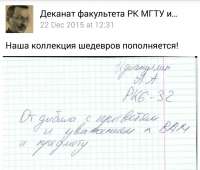 Деканат факультета РК МГТУ и...
22 Dec 2015 at 12:31
Наша коллекция шедевров пополняется!
А.А
РК6-32
От добила с приветом
и уважением к ВАМ
и предмету